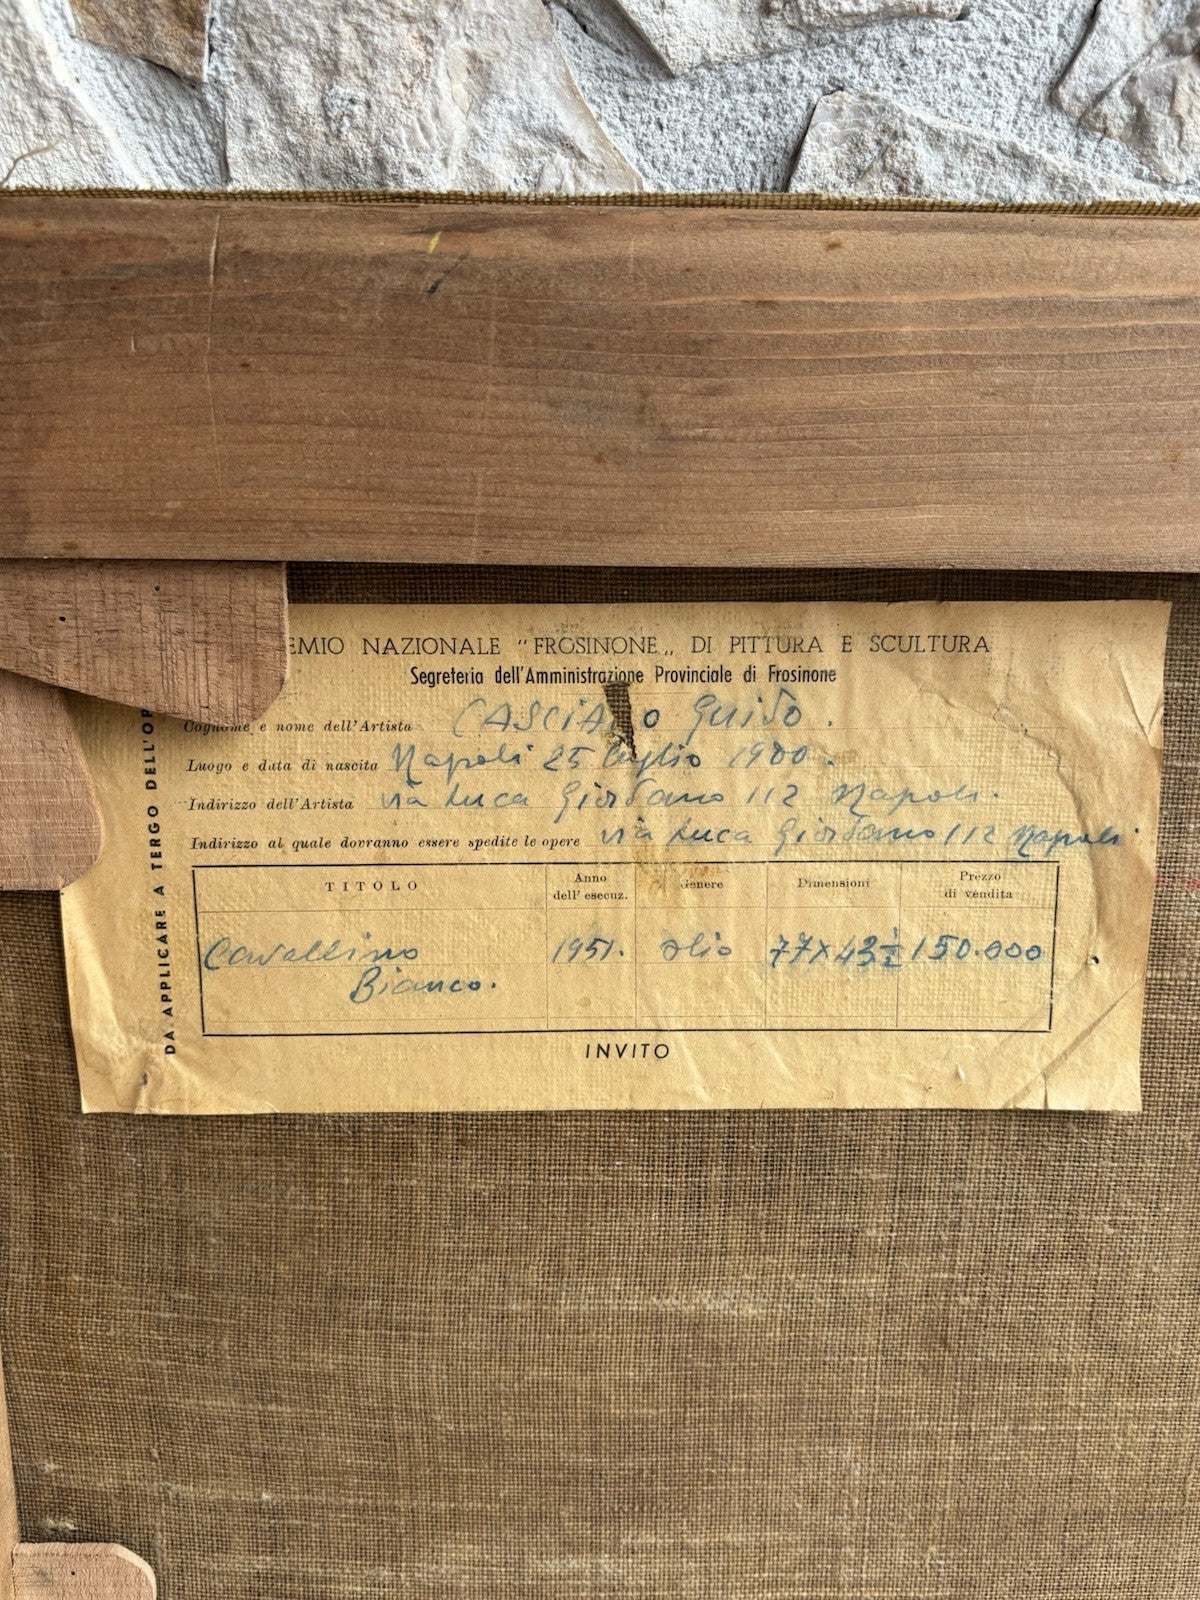 EMIO NAZIONALE "FROSINONE„ DI PITTURA E SCULTURA
Segreteria dell'Amministrazione Provinciale di Frosinone
Cognome e nome dell'Artista Guido.
Luogo e data di nascita Napoli 25 luglio 1900.
Indirizzo dell'Artista via Luca Giordano 112 Napoli.
Indirizzo al quale dovranno essere spedite le opere via Luca Giordano 112 Napoli
TITOLO Anno dell' esecuz. Genere Dimensioni Prezzo di vendita
Cavallino 1951. olio 77x43½ 150.000
Bianco.
INVITO
DA APPLICARE A TERGO DELL'OP